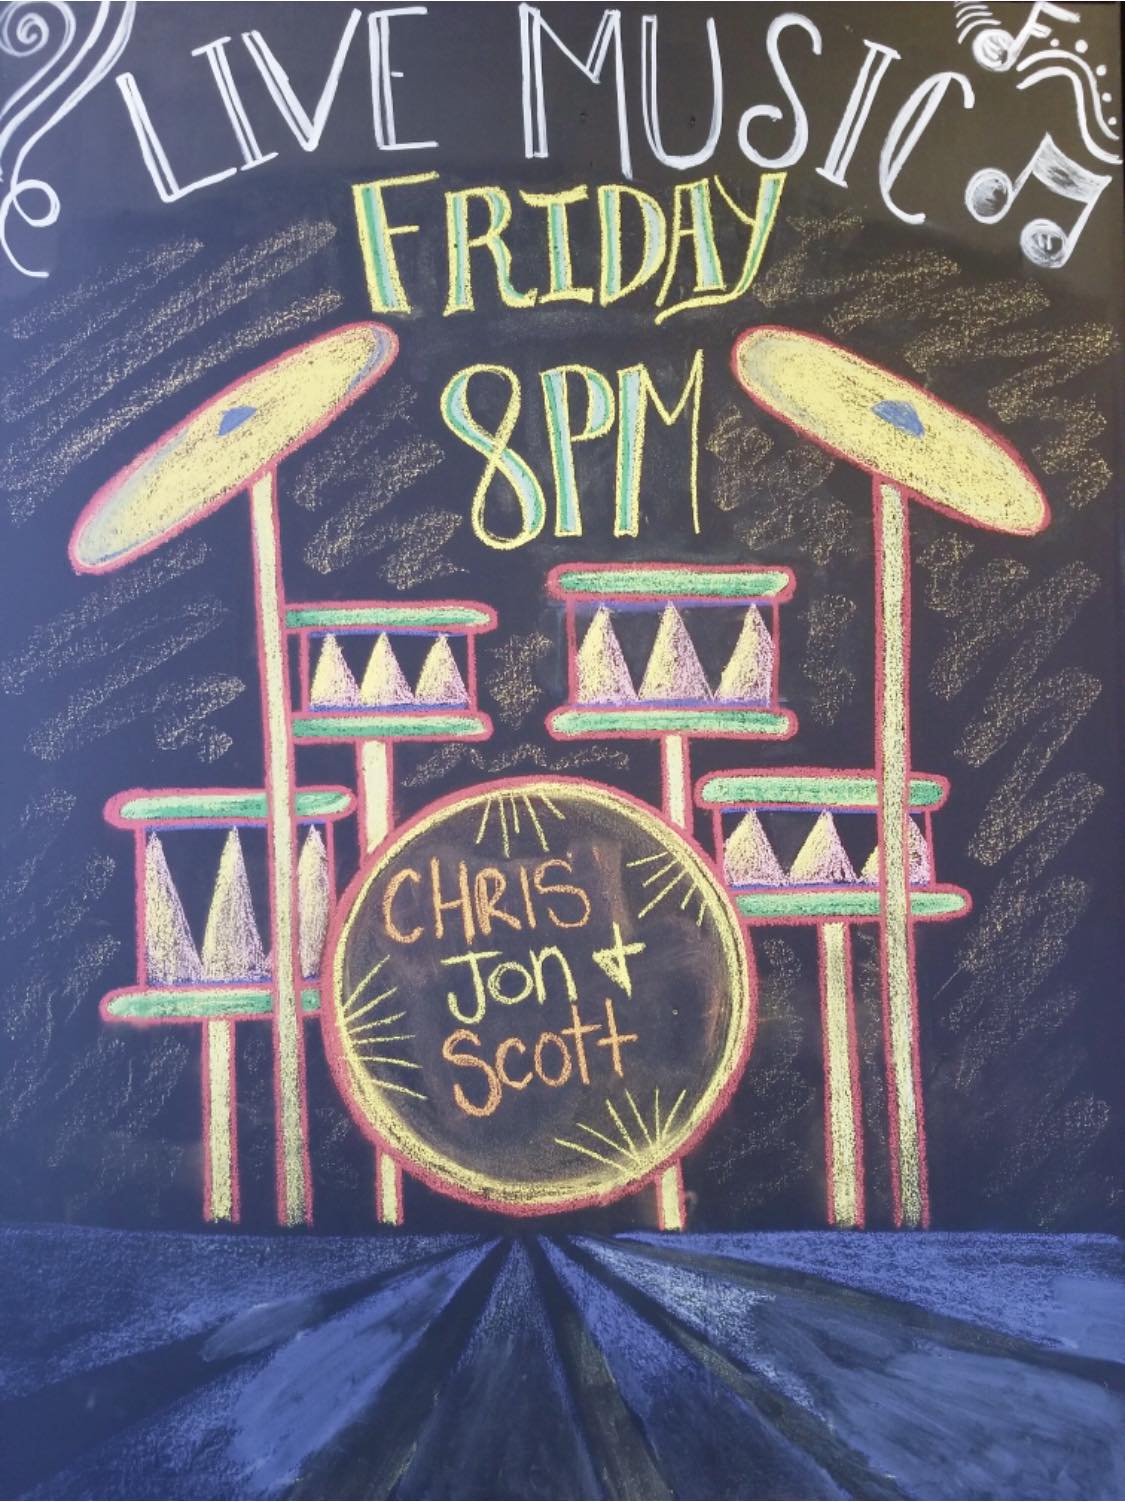 LIVE MUSIC
FRIDAY
8PM
CHRIS
Jon +
Scott